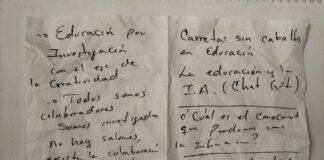 → Educación por
Investigación
con el eje de
la Creatividad.
→ Todos somos
Colaboradores
Somos investigador
no hay salones,
existe la colaboración
Carretas sin caballos
en Educación
La educación y la
I.A. (Chat GPT.)
¿Cuál es el
que perdimos
la Infancia?